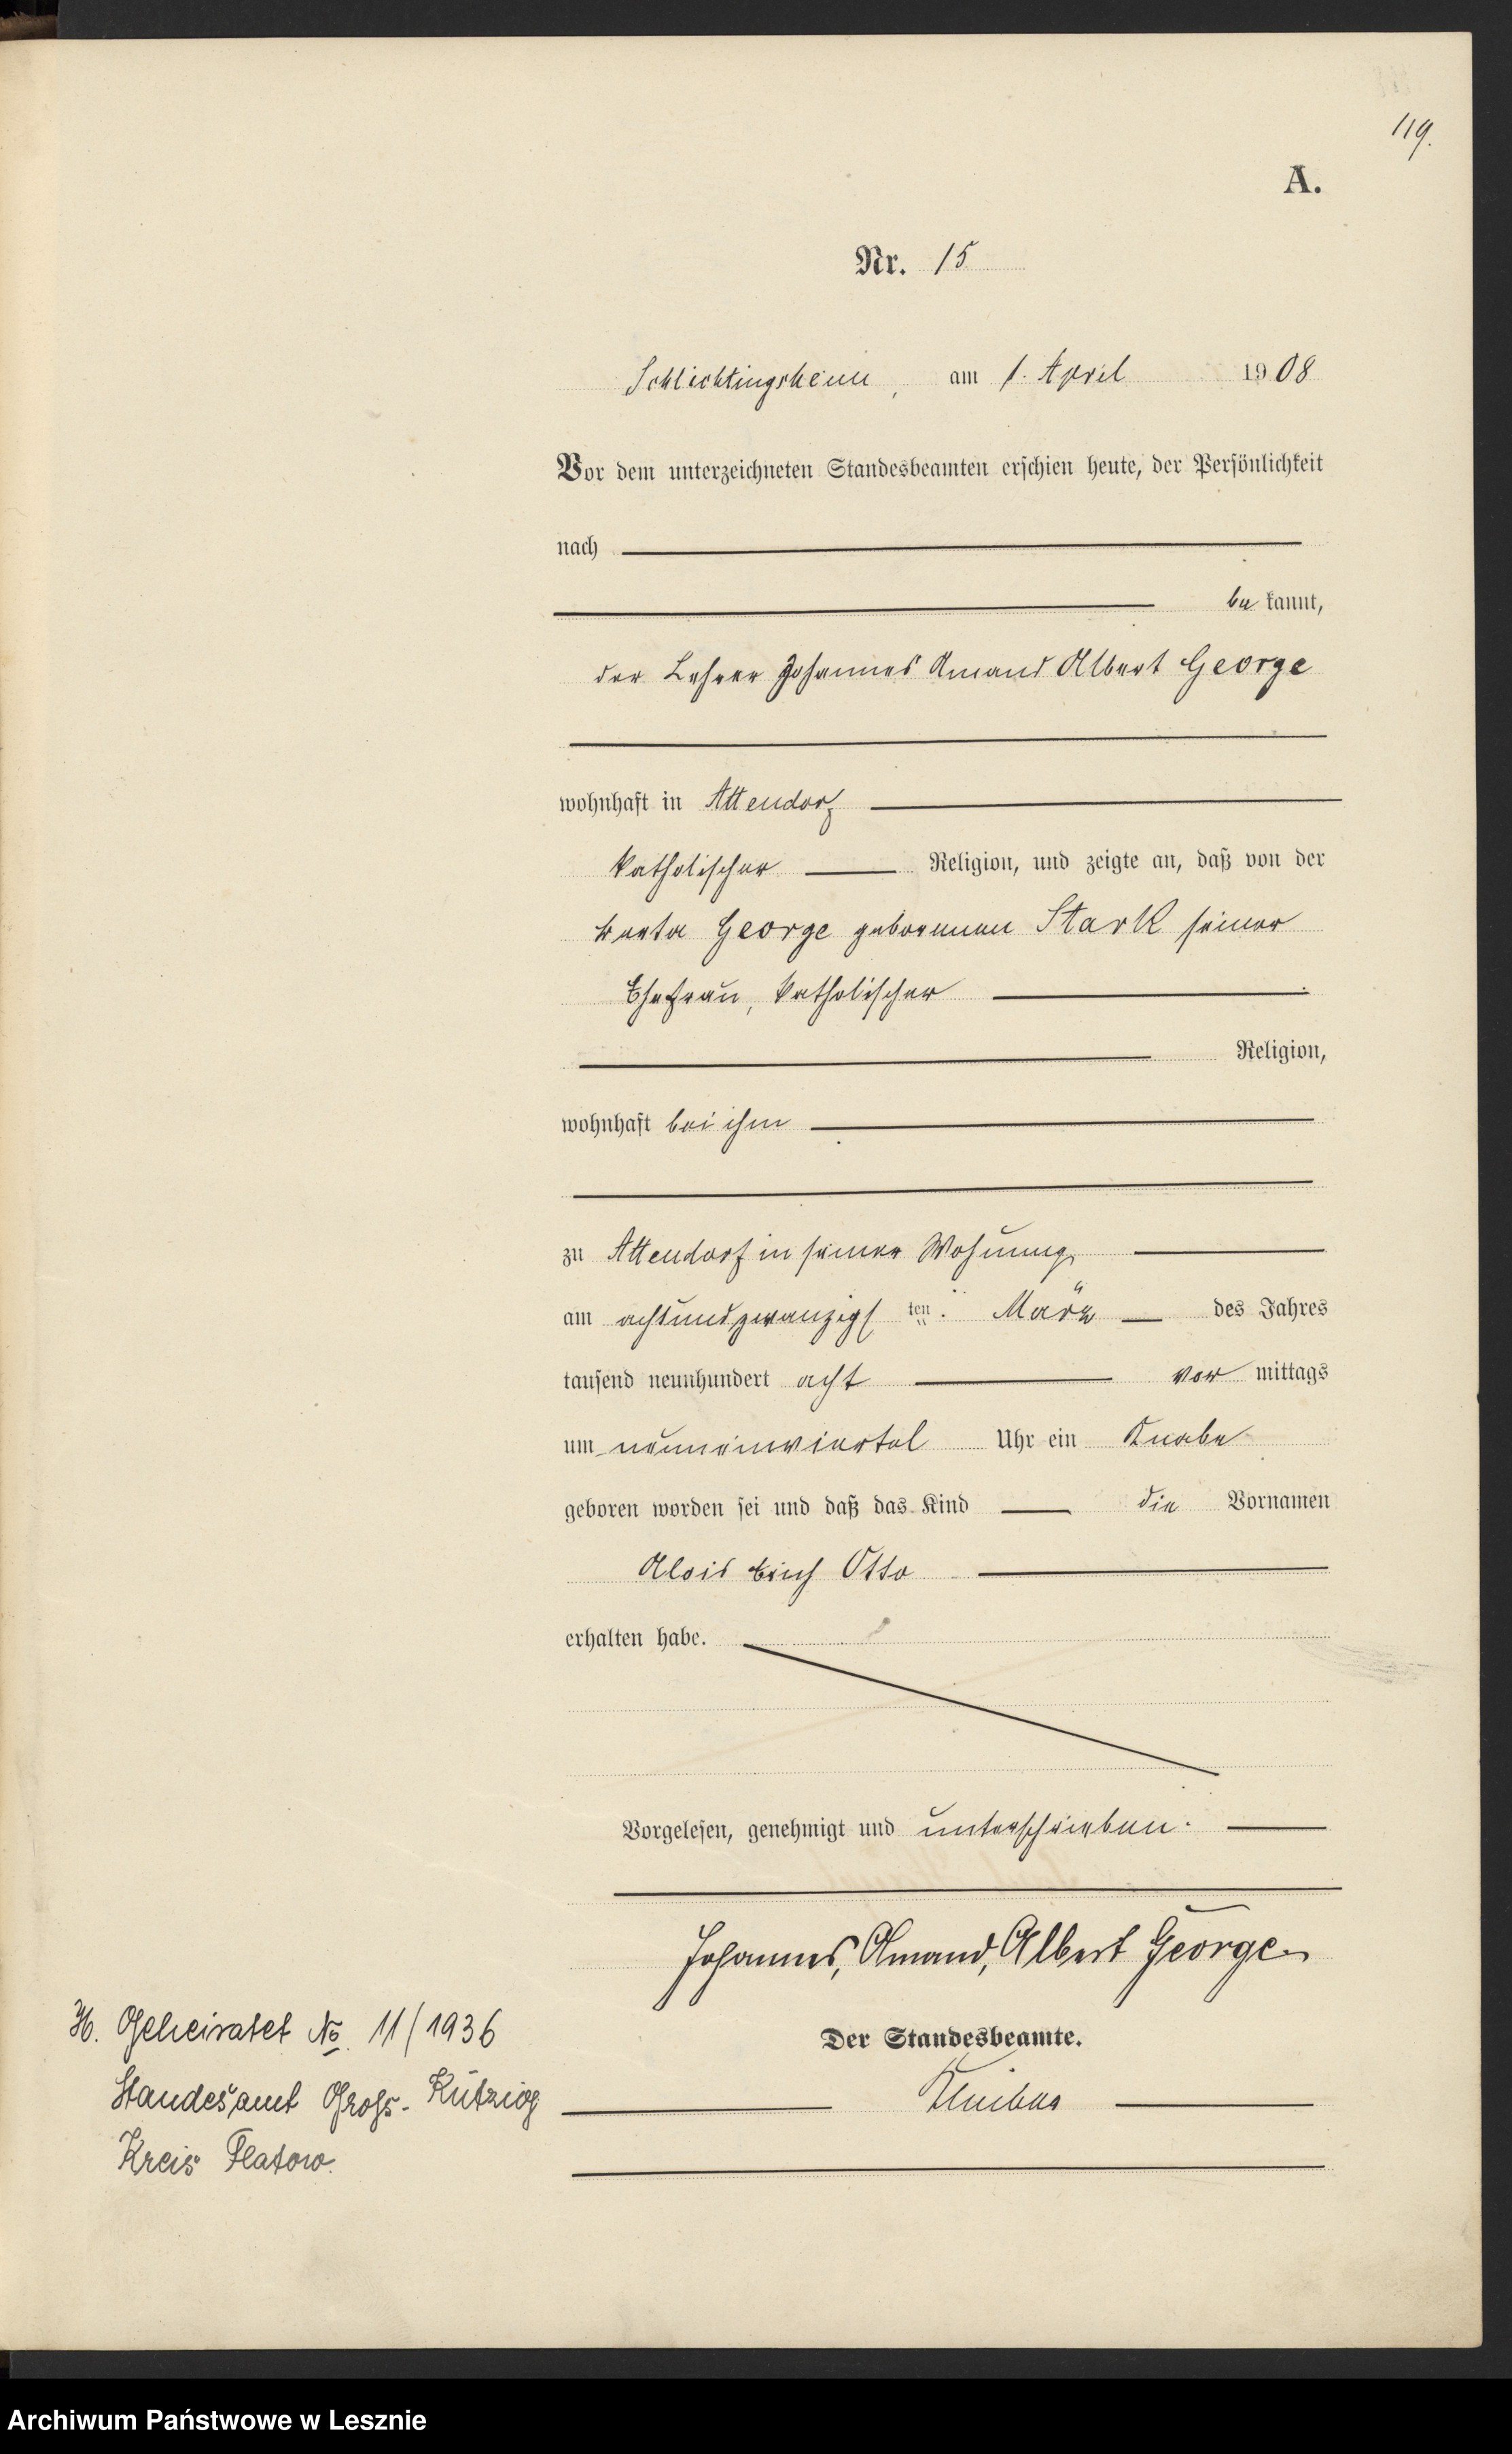 119.
A.
Nr. 15
Schlichtingsheim, am 1. April 1908
Vor dem unterzeichneten Standesbeamten erschien heute, der Persönlichkeit
nach
be kannt,
der Lehrer Johannes Amand Albert George
wohnhaft in Attendorf
katholischer Religion, und zeigte an, daß von der
George geborenen Stark seiner
Ehefrau, katholischer
Religion,
wohnhaft bei ihm
zu Attendorf in seiner Wohnung
am achtundzwanzigs ten März des Jahres
tausend neunhundert acht vor mittags
um neuneinviertel Uhr ein Knabe
geboren worden sei und daß das Kind die Vornamen
Alois Erich Otto
erhalten habe.
Vorgelesen, genehmigt und unterschrieben.
Johannes, Amand, Albert George
Der Standesbeamte.
H. Geheiratet No 11/1936
Standesamt Gross-Kutzig
Kreis Flatow.
Archiwum Państwowe w Lesznie